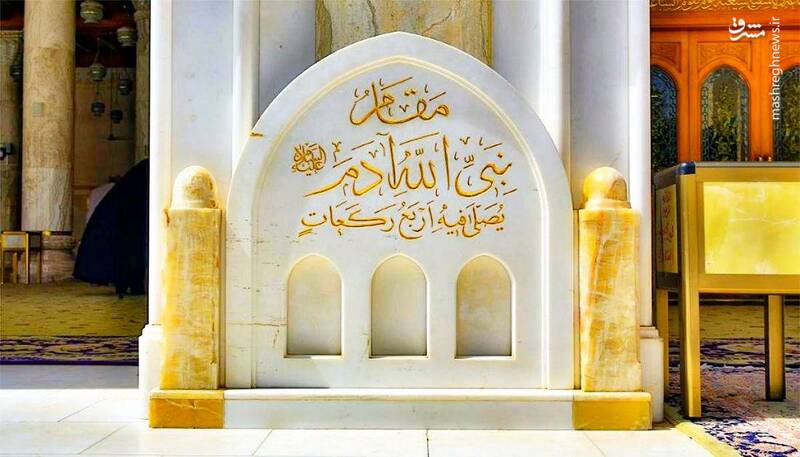 مقام
نبي الله آدم عليه السلام
يصلى فيه أربع ركعات
مشرق
mashreghnews.ir